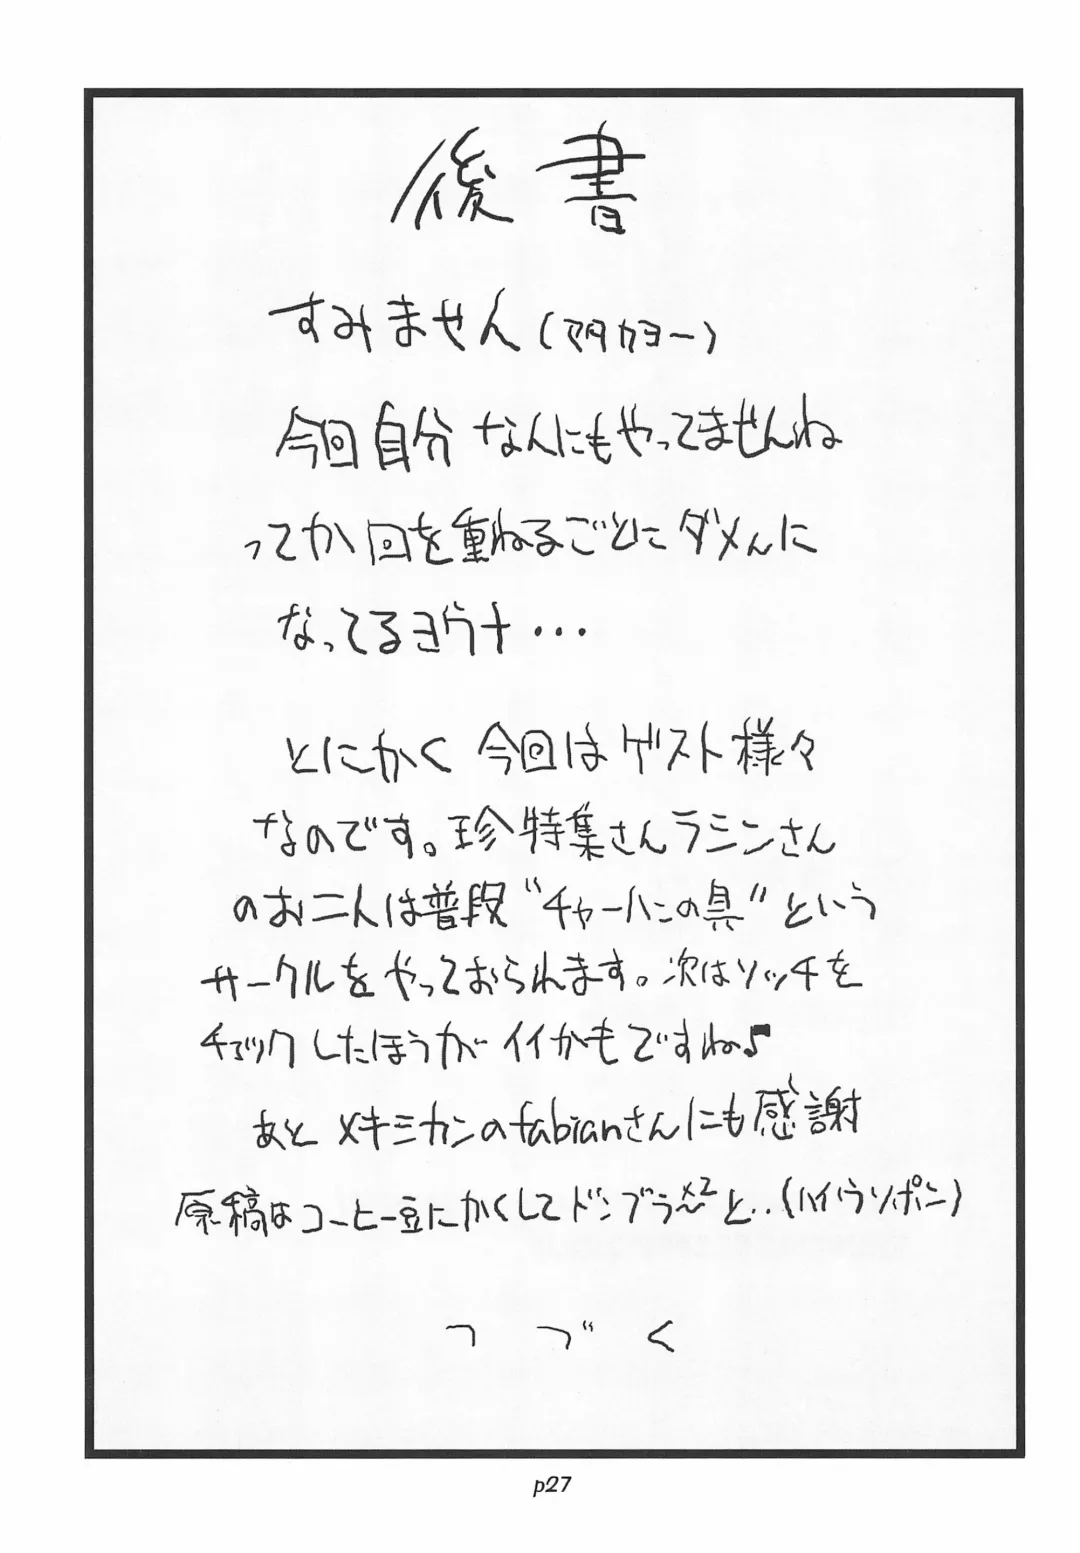 後書
すみません(マタカヨー)
今回自分なんにもやってませんね
ってか回を重ねるごとにダメんに
なってるヨウナ・・・
とにかく今回はゲスト様々
なのです。珍特集さんラミンさん
のお二人は普段“チャーハンの具”という
サークルをやっておられます。次はソッチを
チェックしたほうがイイかもですね♪
あとメキミカンのfabianさんにも感謝
原稿はコーヒー豆にかくしてドンブラ〜×2と..(ハイハウソポン)
つづく
p27